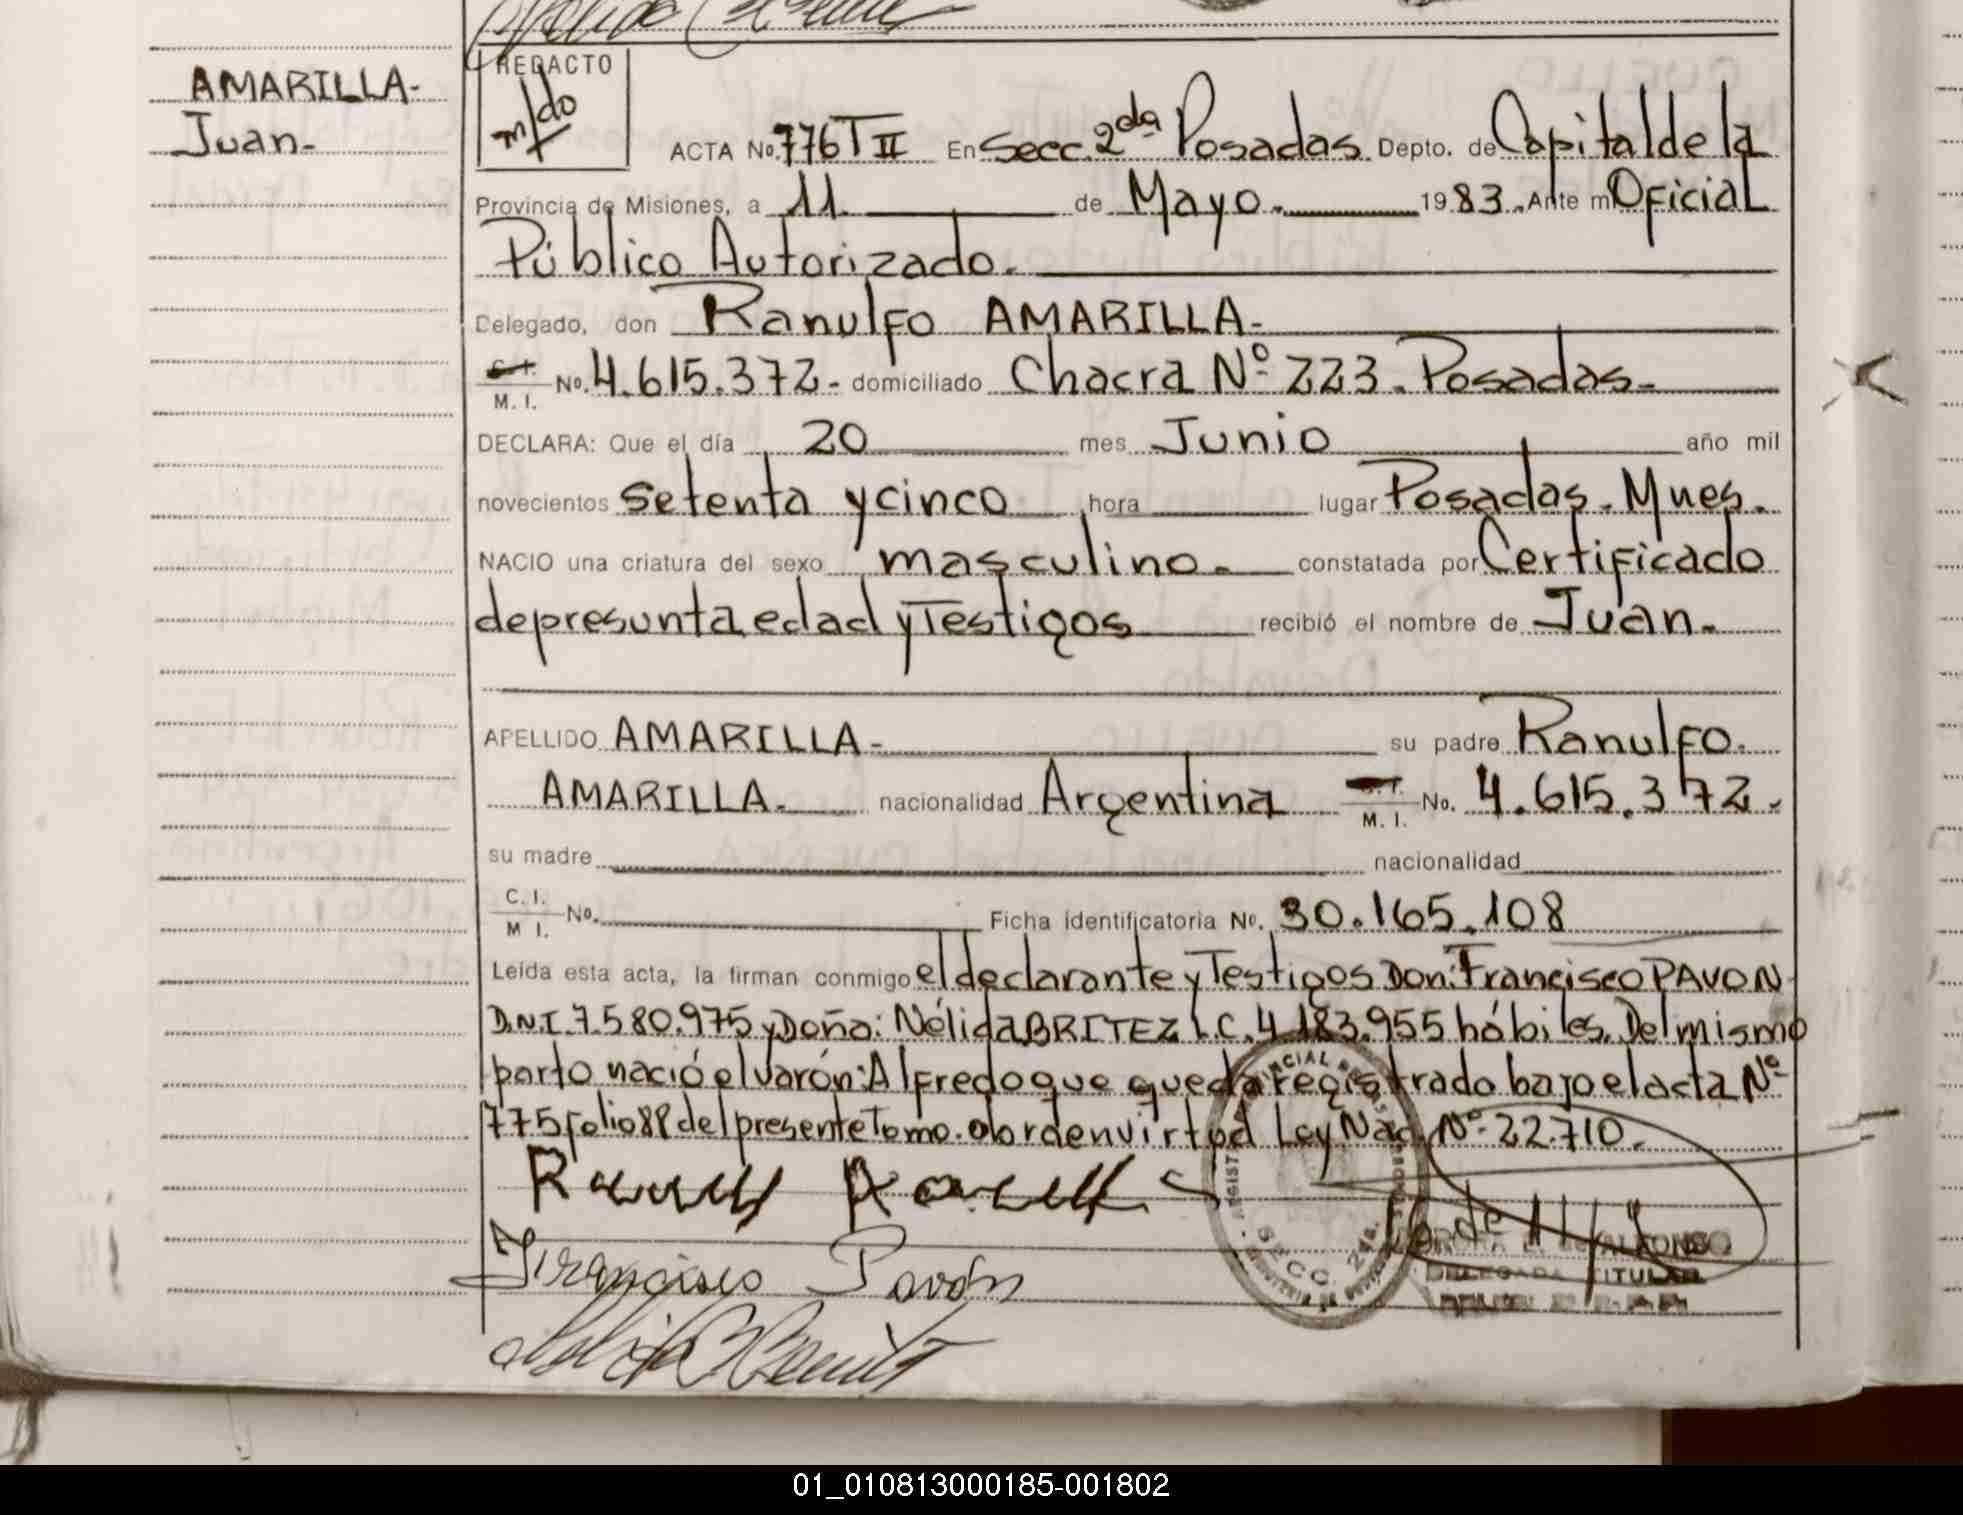 AMARILLA-
Juan-
REDACTO
ACTA No. 776 T II En Secc. 2da Posadas Depto. de Capital de la
Provincia de Misiones, a 11 de Mayo. 1983. Ante mi Oficial
Público Autorizado.
Delegado, don Ranulfo AMARILLA-
C. I. M. I. No. 4.615.372- domiciliado Chacra Nº 223. Posadas-
DECLARA: Que el día 20 mes Junio año mil
novecientos setenta y cinco hora lugar Posadas. Mnes.
NACIO una criatura del sexo masculino. constatada por Certificado
de presunta edad y Testigos recibió el nombre de Juan.
APELLIDO AMARILLA- su padre Ranulfo.
AMARILLA. nacionalidad Argentina C. I. M. I. No. 4.615.372.
su madre nacionalidad
C. I. M I. No. Ficha identificatoria No. 30.165.108
Leída esta acta, la firman conmigo el declarante y Testigos Don: Francisco PAVON
D.N.I. 7.580.975 y Doña: Nélida BRITEZ L.C. 4.183.955 hábiles. Del mismo
parto nació el varón: Alfredo que queda registrado bajo el acta Nº
775 folio 88 del presente Tomo. labrada en virtud Ley Nac. Nº 22.710.
Francisco Pavón
SECC. 2da.
DELEGADA TITULAR
01_010813000185-001802